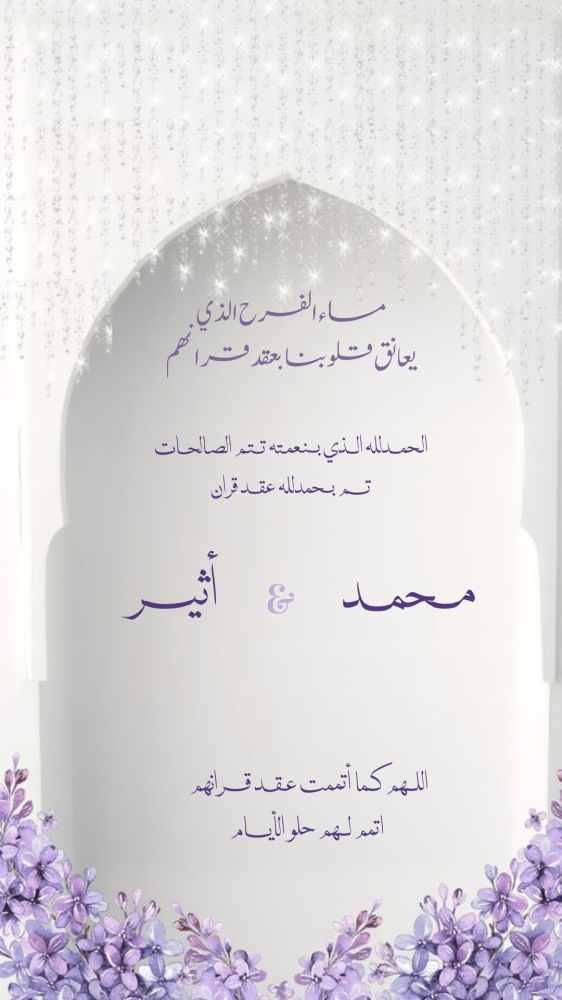 مساء الفرح الذي
يعانق قلوبنا بعقد قرانهم
الحمدلله الذي بنعمته تتم الصالحات
تم بحمدلله عقد قران
محمد & أثير
اللهم كما أتممت عقد قرانهم
اتمم لهم حلو الأيام